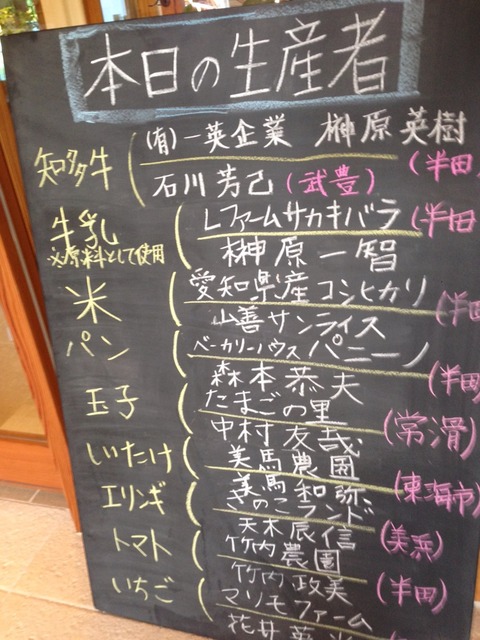 本日の生産者
知多牛 (有)一英企業 榊原英樹 (半田
石川芳己 (武豊)
牛乳 Lファームサカキバラ (半田
※原料として使用 榊原一智
米 愛知県産コシヒカリ (半田
山善サンライス
パン ベーカリーハウス パニーノ
森本恭夫 (半田
玉子 たまごの里
中村友哉 (常滑)
しいたけ 美馬農園
美馬和弥 (東海市)
エリンギ きのこランド
天木辰信 (美浜)
トマト 竹内農園
竹内政美 (半田)
いちご マリモファーム
花井